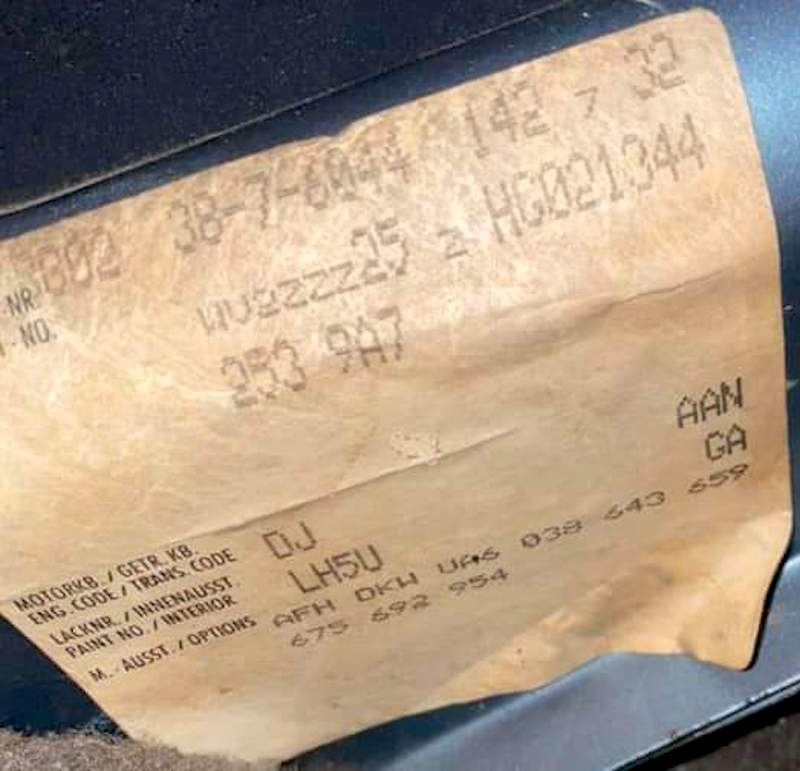 802 38-7-6044 142 7 32
NR
NO. WV2ZZZ25 Z HG021344
253 9A7
AAN
GA
MOTORKB. / GETR. KB.
ENG. CODE / TRANS. CODE DJ
LACKNR. / INNENAUSST.
PAINT NO. / INTERIOR LH5U
M.- AUSST. / OPTIONS AFH DKW UA6 038 643 659
675 692 954